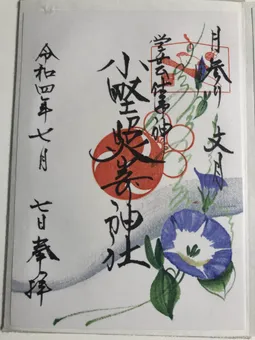 月参り 文月
学芸の神
小野照崎神社
令和四年七月
七日奉拝